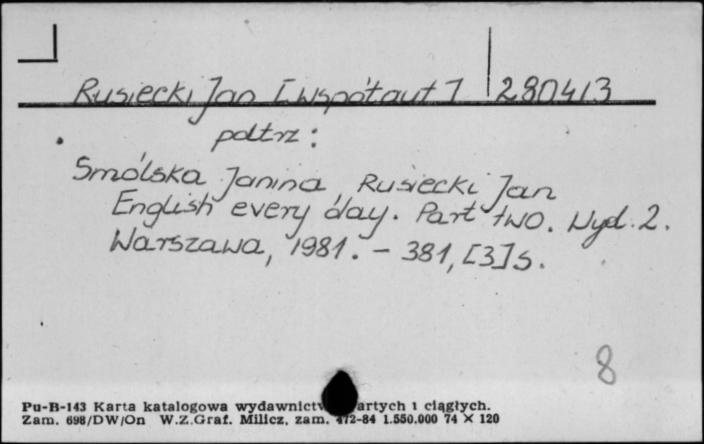 Rusiecki Jan [współaut] 280413
patrz:
Smólska Janina, Rusiecki Jan
English every day. Part two. Wyd. 2.
Warszawa, 1981. – 381, [3] s.
8
Pu-B-143 Karta katalogowa wydawnictw zwartych i ciągłych.
Zam. 698/DW/On W.Z.Graf. Milicz, zam. 472-84 1.550.000 74 × 120